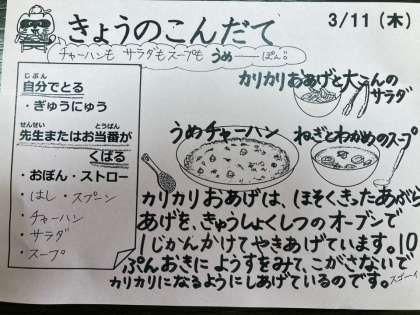 きょうのこんだて
3/11(木)
チャーハンも サラダもスープも うめーーぽん。
カリカリおあげと大こんの
サラダ
うめチャーハン
ねぎとわかめのスープ
じぶん
自分でとる
・ぎゅうにゅう
せんせい とうばん
先生またはお当番が
くばる
・おぼん・ストロー
・はし・スプーン
・チャーハン
・サラダ
・スープ
カリカリおあげは、ほそくきったあぶら
あげを、きゅうしょくしつのオーブンで
1じかんかけてやきあげています。10
ぷんおきにようすをみて、こがさないで
カリカリになるようにしあげているのです。スゴーイ